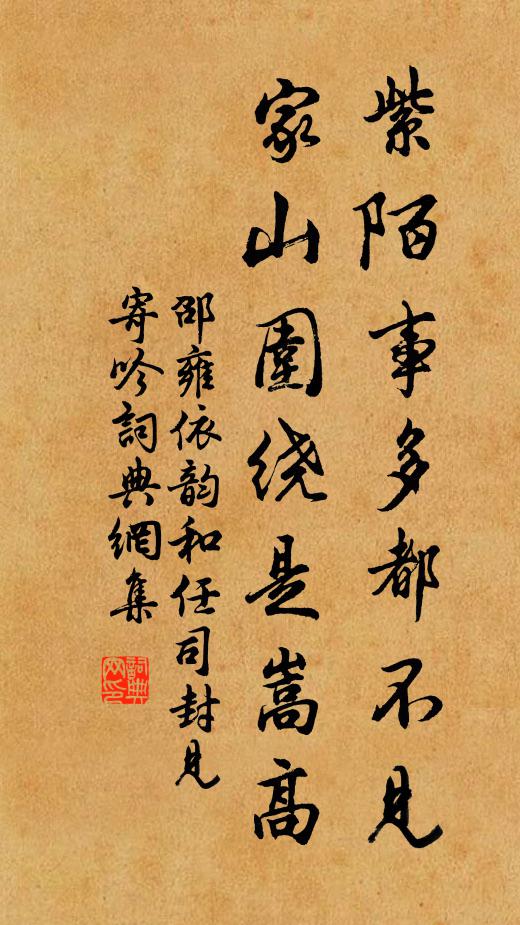 紫陌事多都不见
家山圍绕是嵩高
邵雍依韵和任司封见
寄吟詞典網集
詞典网印